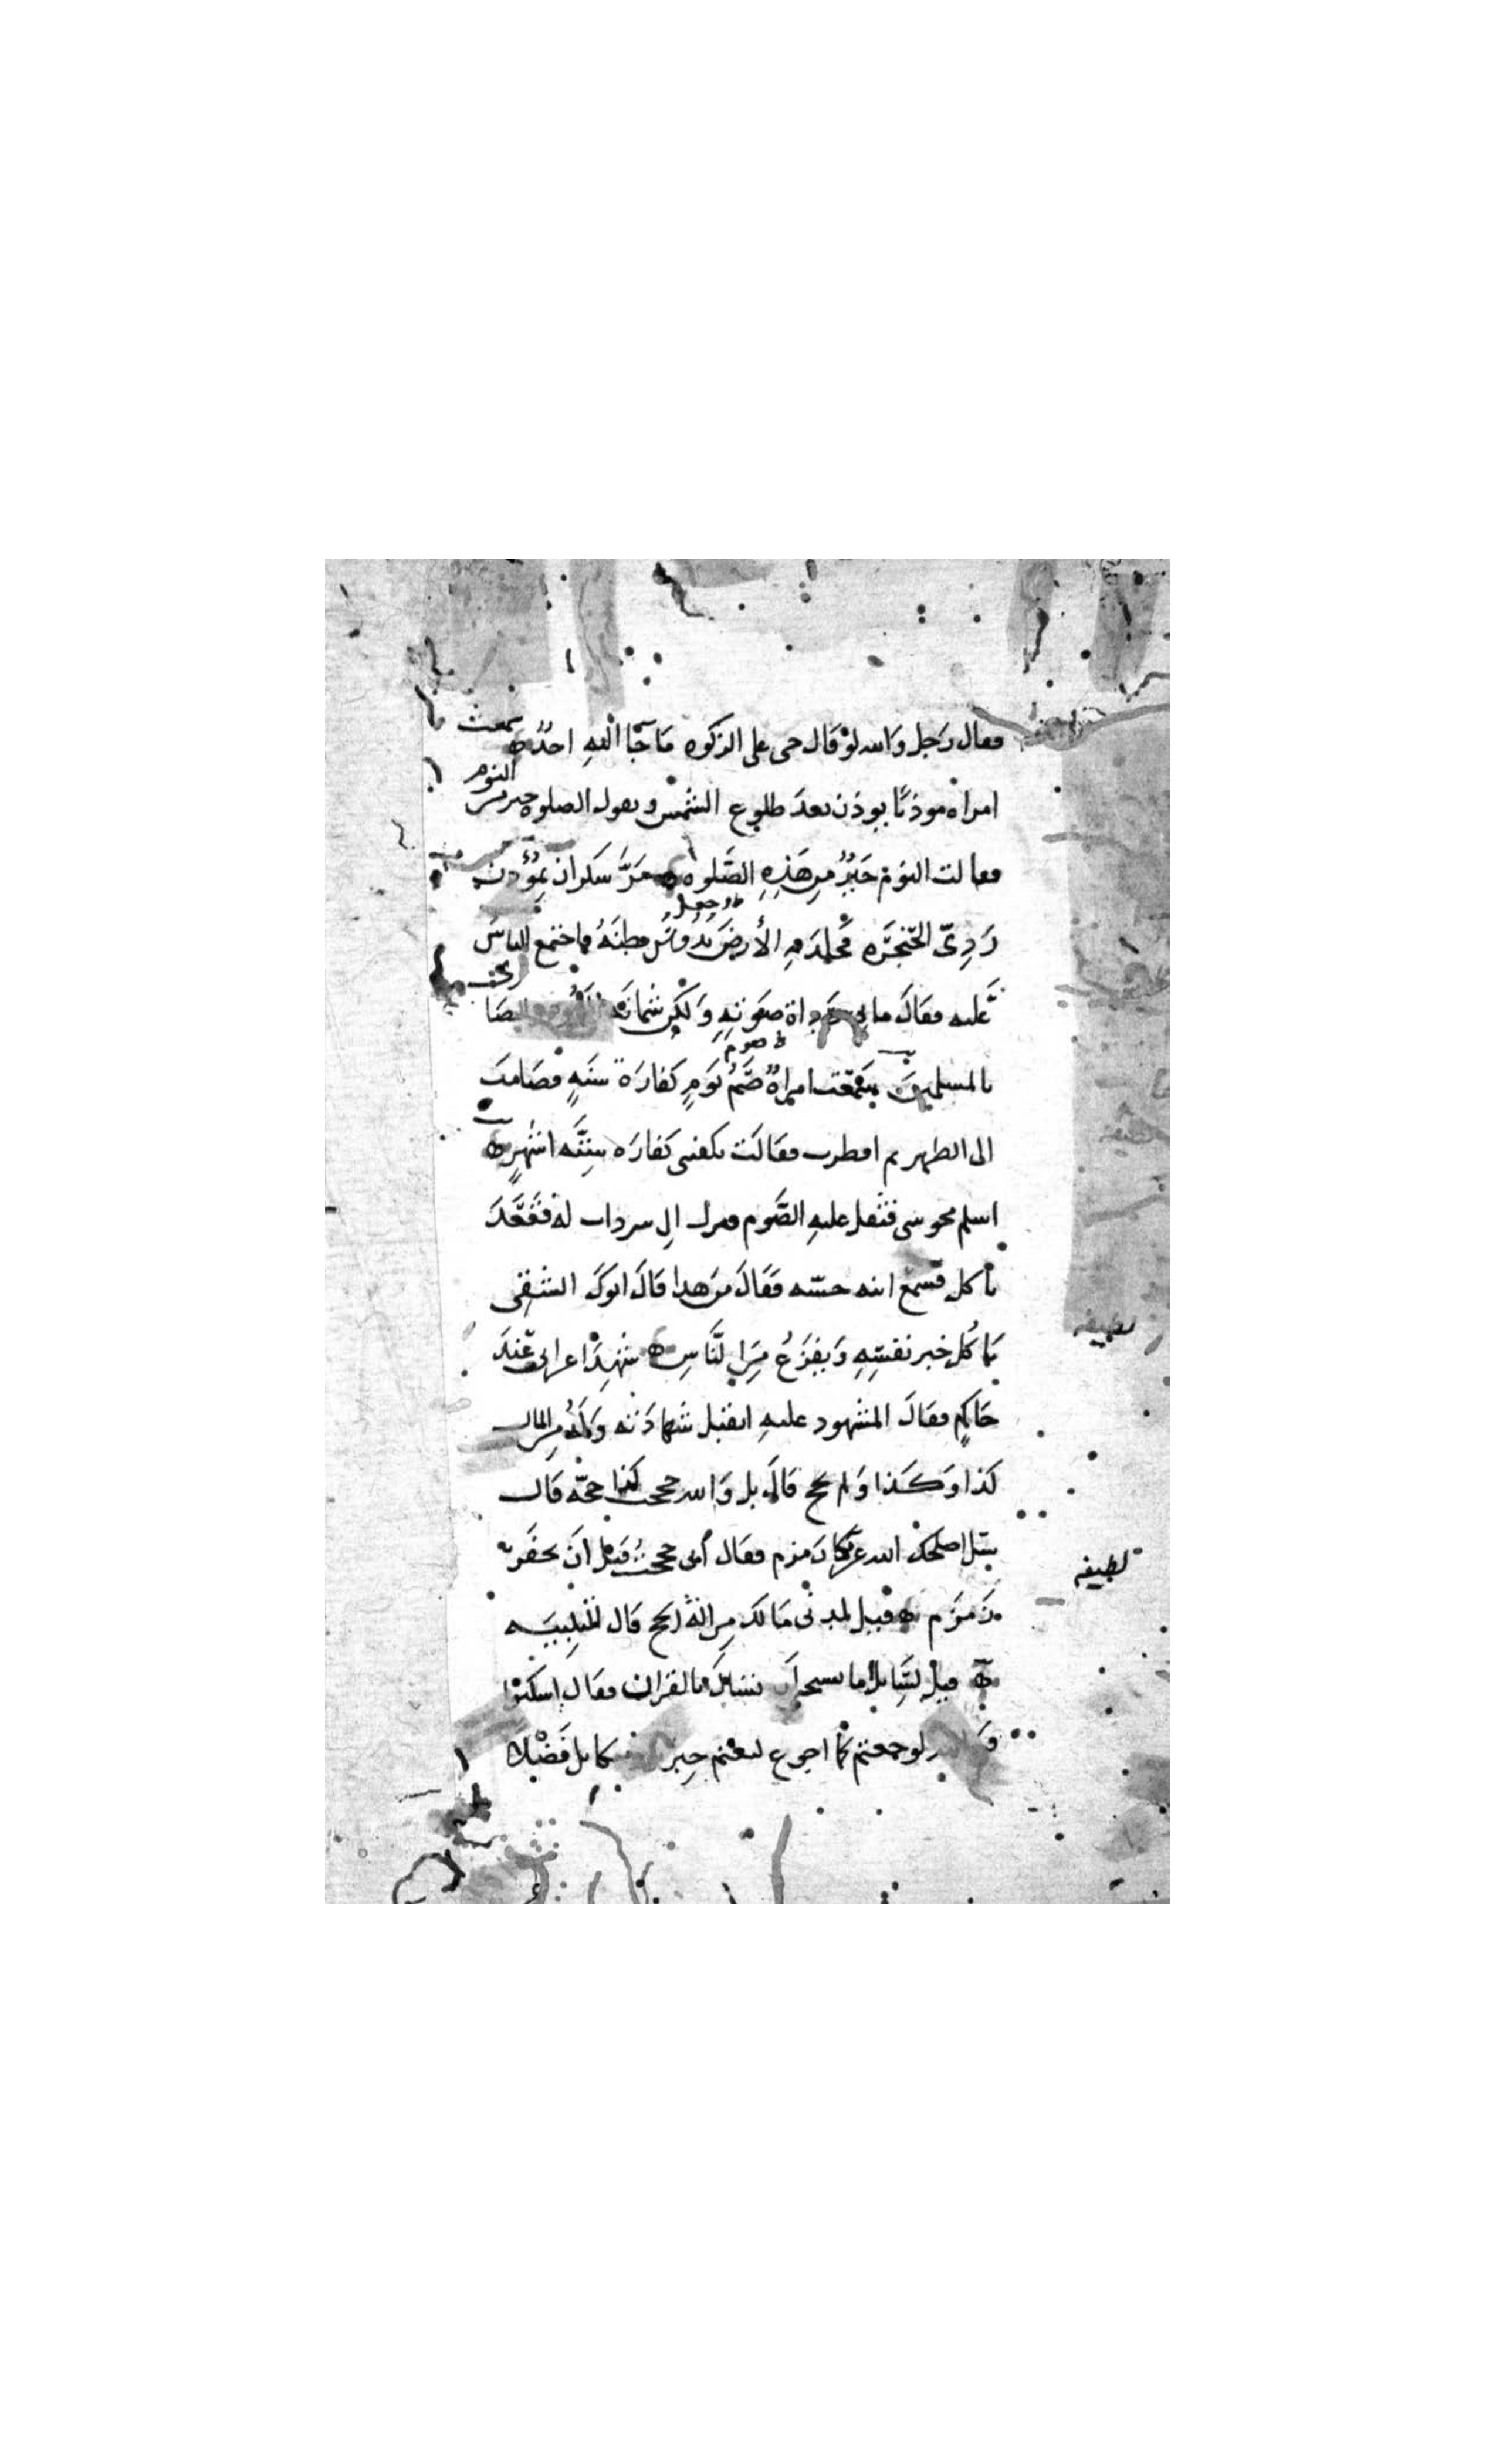 فقال رجل والله لو قال حى على الزكوه ما جا اليه احد سمعت
امراه موذنًا يوذن بعد طلوع الشمس ويقول الصلوه خير من النوم
فقالت النوم خير من هذه الصلوه مرّ سكران بمؤذن
ردىّ الحنجره فجلد به الأرض وجعل يدوس بطنه فاجتمع الناس
عليه فقال ما بى رداة صوته ولكن شماتة اليهود والنصارى
بالمسلمين سمعت امراه صوم يوم كفارة سنه فصامت
الى الظهر ثم افطرت فقالت يكفينى كفاره ستّه اشهر
اسلم مجوسى فثقل عليه الصّوم فنزل الى سرداب له فقعد
ياكل فسمع ابنه حسّه فقال من هذا قال ابوك الشقى
ياكل خبز نفسه ويفزع من الناس شهد اعرابى عند
حاكم فقال المشهود عليه اتقبل شهادته وله من المال
كذا وكذا ولم يحج قال بلى والله حججت كذا حجّه قال
سله اصلحك الله عن مكان زمزم فقال انى حججت قبل أن تحفر
زمزم قيل لمدنى ما لك من الة الحج قال التلبيه
قيل لسايل اما تستحى ان تسال بالقران فقال اسكتوا
لو جعتم كما اجوع لبعتم جبريل وميكايل فضلا
لطيفه
لطيفه